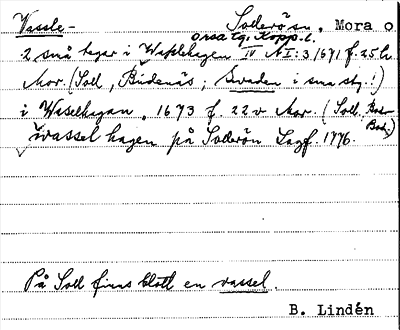 Vassle-
Sollerön, Mora o
Orsa tg. Kopp. l.
2 små hagar i Wasslehagen IV AI:3 1671 f. 25 h.
Mor. (Soll, Bidenäs; Svaden i sms stg.!)
i Waselhagan, 1673 f. 22 v Mor. (Soll.
Vasselhagen på Sollerön Lagf. 1776.
På Soll finns blott en vassel.
B. Lindén